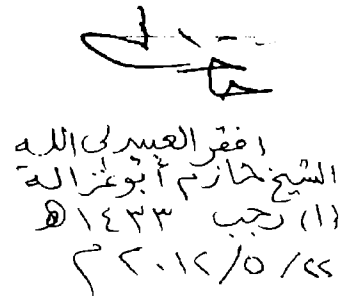 افقر العبيد لى الله
الشيخ حازم أبوغزالة
(١) رجب ١٤٣٣ هـ
٢٢/٥/٢٠١٢ م